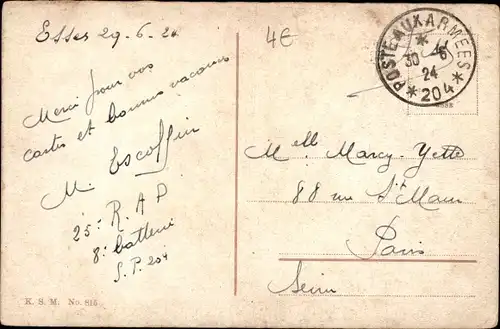 Essen 29.6.24
4€
Merci pour vos
cartes et bonnes vacances
M. Escoffier
25e R.A.P
8e batterie
S.P. 204
K. S. M. No. 815
* POSTE AUX ARMEES *
30 6
24
* 204 *
Melle Marcy-Yette
88 rue St Maur
Paris
Seine